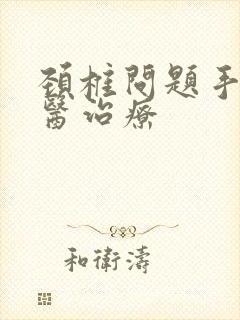 頸椎問題手
醫治療
和衛濤